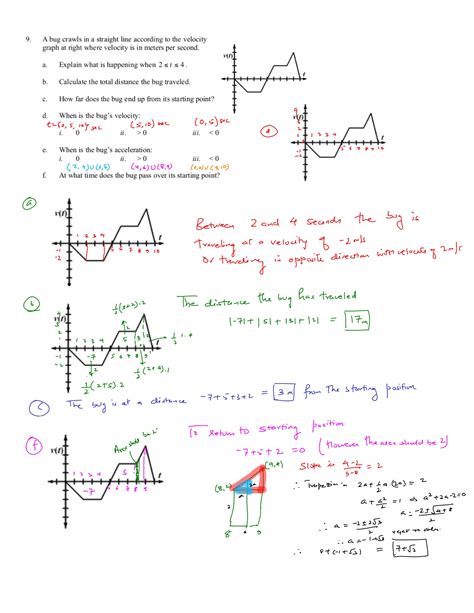 9. A bug crawls in a straight line according to the velocity
graph at right where velocity is in meters per second.
a. Explain what is happening when 2 ≤ t ≤ 4.
b. Calculate the total distance the bug traveled.
c. How far does the bug end up from its starting point?
d. When is the bug's velocity:
t = {0, 5, 10} sec (5, 10) sec (0, 5) sec
i. 0 ii. > 0 iii. < 0
e. When is the bug's acceleration:
i. 0 ii. > 0 iii. < 0
(2, 4) ∪ (6, 8)
f. At what time does the bug pass over its starting point?
v(t)
t
d
1 2 3 4 5 6 7 8 9 10
a
v(t)
1 2 3 4 5 6 7 8 9 10
-1
-2
Between 2 and 4 seconds the bug is
traveling at a velocity of -2 m/s
Or traveling in opposite direction with velocity of 2 m/s
b
v(t)
1 2 3 4 5 6 7 8 9 10
-7
5
½(3+2).2
½(2+5).2
The distance the bug has traveled
|-7| + |5| + |3| + |2| = 17m
c
The bug is at a distance -7+5+3+2 = 3 m from the starting position
f
v(t)
1 2 3 4 5 6 7 8 9 10
-7
5
Area should be 2
To return to starting position
-7+5+2 = 0 (However the area should be 2)
(9,4)
8 9
Slope is = 2
∴ 2a + ½ a (2a) = 2
∴ a = -2±2√3 / 2
∴ a = -1+√3
∴ 8+(-1+√3) = 7+√3